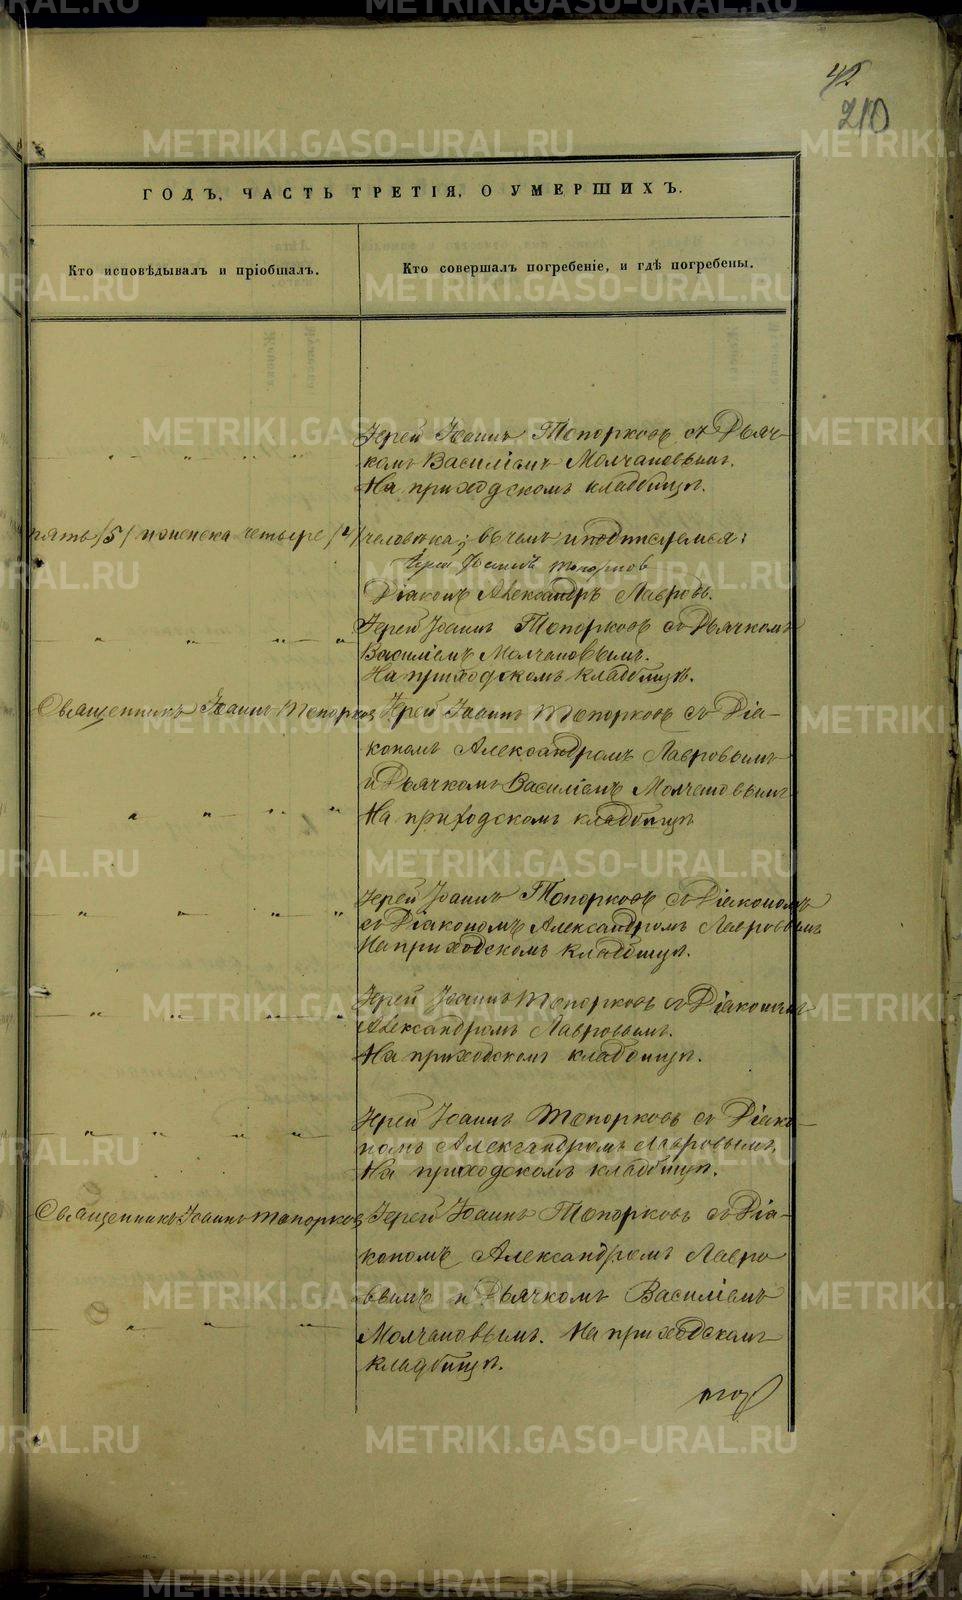 42
210
ГОДЪ, ЧАСТЬ ТРЕТІЯ, О УМЕРШИХЪ.
Кто исповѣдывалъ и пріобщалъ.
Кто совершалъ погребеніе, и гдѣ погребены.
Іерей Іоаннъ Топорковъ съ Дьяч-
комъ Василіемъ Молчановымъ.
На приходскомъ кладбищѣ.
пять /5/ женска четыре /4/ человѣка; въ чемъ и подписуемся:
Іерей Іоаннъ Топорковъ
Діаконъ Александръ Лавровъ.
Іерей Іоаннъ Топорковъ съ Дьячкомъ
Василіемъ Молчановымъ.
На приходскомъ кладбищѣ.
Священникъ Іоаннъ Топорковъ
Іерей Іоаннъ Топорковъ съ Діа-
кономъ Александромъ Лавровымъ
и Дьячкомъ Василіемъ Молчановымъ
На приходскомъ кладбищѣ
Іерей Іоаннъ Топорковъ съ Діакономъ
съ Діакономъ Александромъ Лавровымъ
На приходскомъ кладбищѣ.
Іерей Іоаннъ Топорковъ съ Діакономъ
Александромъ Лавровымъ.
На приходскомъ кладбищѣ.
Іерей Іоаннъ Топорковъ съ Діако-
номъ Александромъ Лавровымъ.
На приходскомъ кладбищѣ.
Священникъ Іоаннъ Топорковъ
Іерей Іоаннъ Топорковъ съ Діа-
кономъ Александромъ Лавро
вымъ и Дьячкомъ Василіемъ
Молчановымъ. На приходскомъ
кладбищѣ.
METRIKI.GASO-URAL.RU